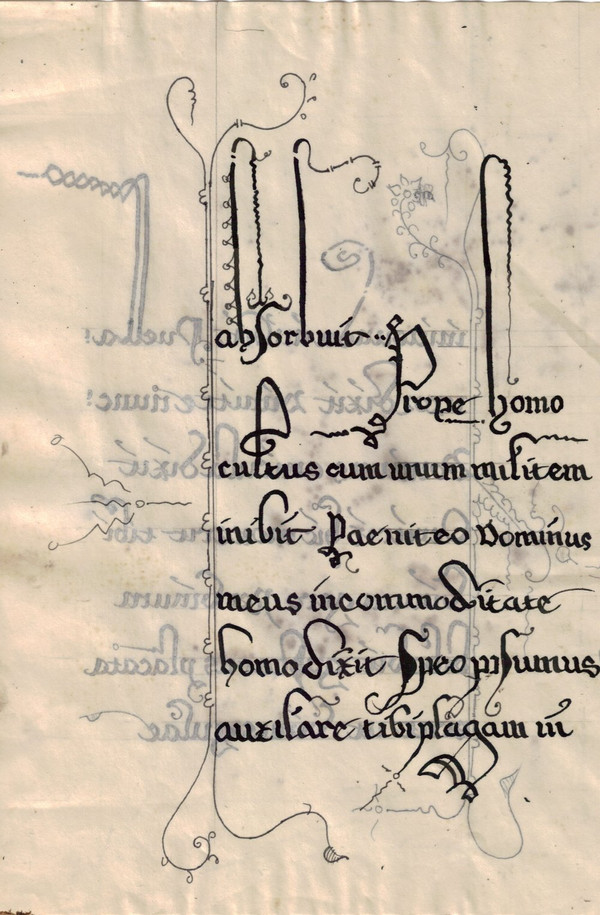 absorbuit..
Prope homo
cultus cum unum militem
inibit Paeniteo Dominus
meus incommoditate
homo dixit Speo
auxilare tibi plagam in